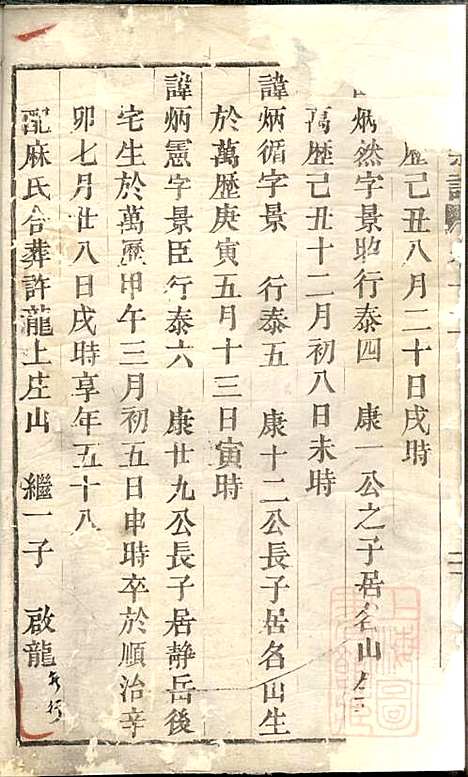 己丑八月二十日戌時
炳然字景昭行泰四 康一公之子居名山
萬歷己丑十二月初八日未時
諱炳循字景 行泰五 康十二公長子居名山生
於萬歷庚寅五月十三日寅時
諱炳憲字景臣行泰六 康廿九公長子居静岳後
宅生於萬歷甲午三月初五日申時卒於順治辛
卯七月廿八日戌時享年五十八
配麻氏合葬許龍上庄山 繼一子 啟龍